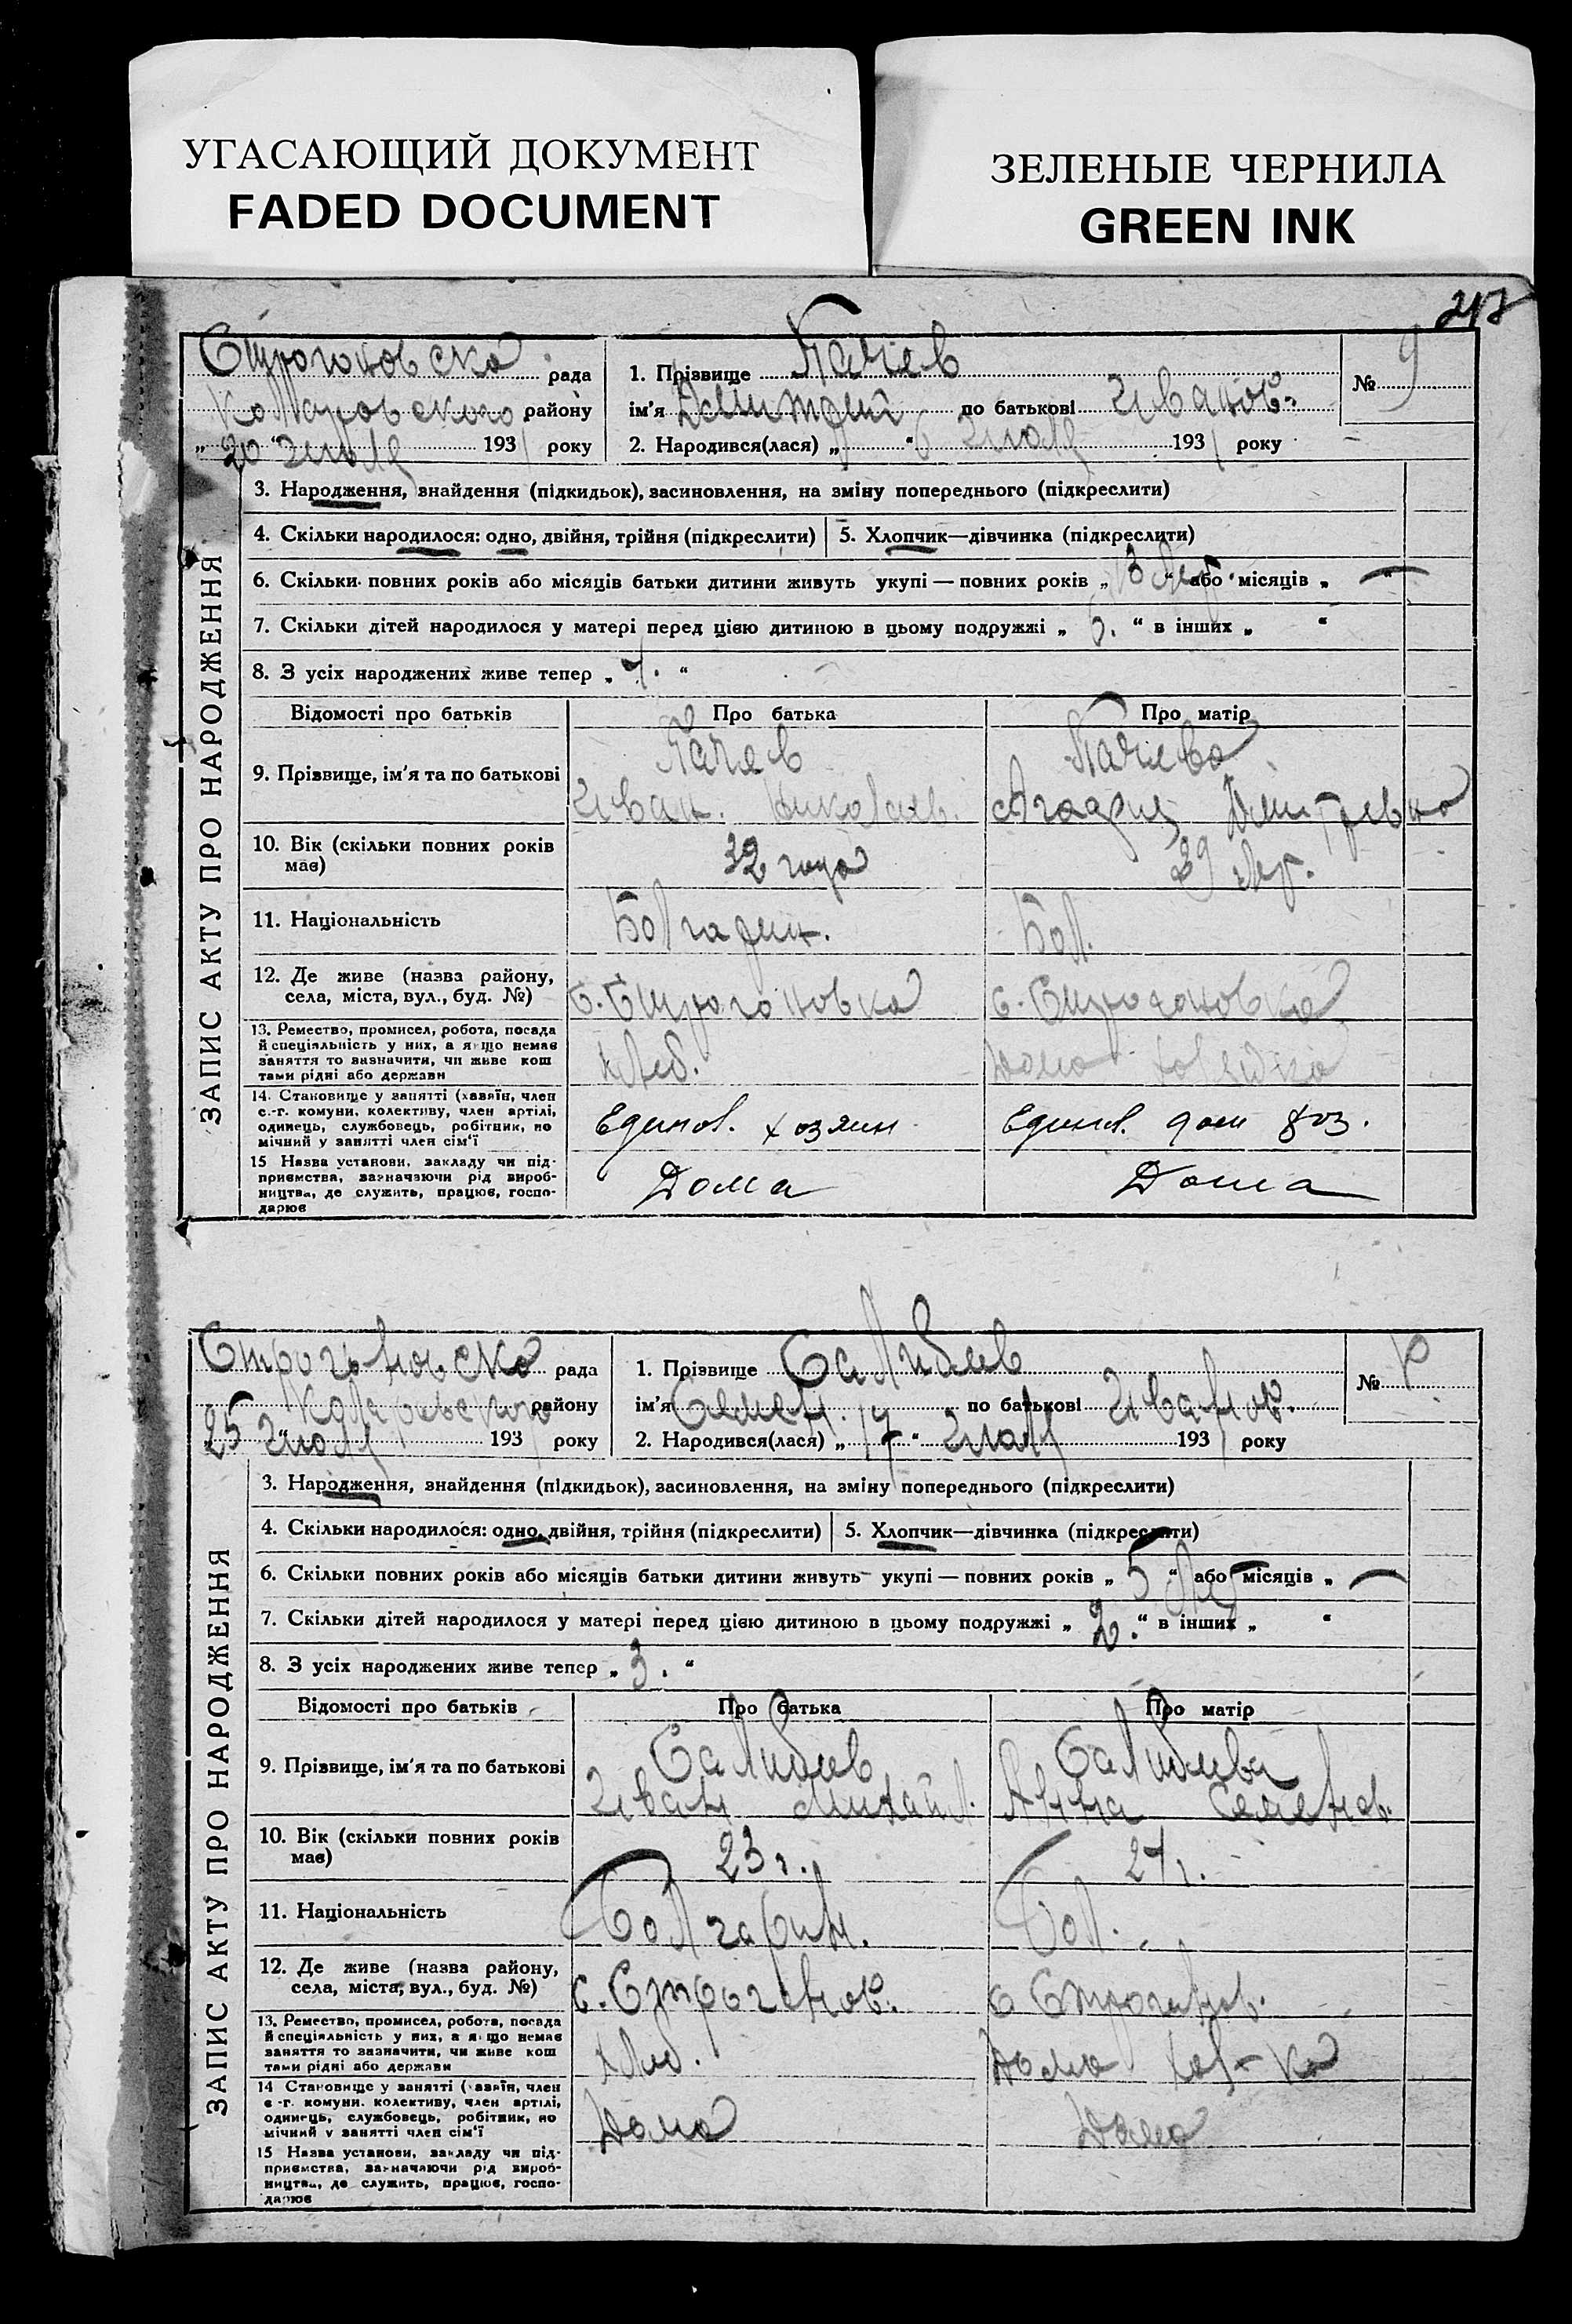 УГАСАЮЩИЙ ДОКУМЕНТ
FADED DOCUMENT
ЗЕЛЕНЫЕ ЧЕРНИЛА
GREEN INK
217
ЗАПИС АКТУ ПРО НАРОДЖЕННЯ
Строгоновска рада
Коларовского району
„20“ Июля 1931 року
1. Прізвище Пачев
ім'я Дмитрий по батькові Иванов.
№ 9
2. Народився(лася) „ “ 6 Июля 1931 року
3. Народження, знайдення (підкидьок), засиновлення, на зміну попереднього (підкреслити)
4. Скільки народилося: одно, двійня, трійня (підкреслити) 5. Хлопчик—дівчинка (підкреслити)
6. Скільки повних років або місяців батьки дитини живуть укупі — повних років „13 лет“ або місяців „—“
7. Скільки дітей народилося у матері перед цією дитиною в цьому подружжі „6.“ в інших „ “
8. З усіх народжених живе тепер „7.“
Відомості про батьків Про батька Про матір
9. Прізвище, ім'я та по батькові Пачев Иван. Николаев. Пачева Агафия Дмитревна
10. Вік (скільки повних років має) 32 года 39 лет.
11. Національність Болгарин. Бол.
12. Де живе (назва району, села, міста, вул., буд. №) с. Строгоновка с. Строгоновка
13. Ремество, промисел, робота, посада й спеціяльність у них, а якщо немає заняття то зазначити, чи живе коштами рідні або держави хлеб. Дома хозяйка
14. Становище у занятті (хазяїн, член с.-г. комуни, колективу, член артілі, одинець, службовець, робітник, помічний у занятті член сім'ї Единол. хозяин Единол. дом хоз.
15 Назва установи, закладу чи підприємства, зазначаючи рід виробництва, де служить, працює, господарює Дома Дома
ЗАПИС АКТУ ПРО НАРОДЖЕННЯ
Строгоновска рада
Коларовского району
25 Июля 193 року
1. Прізвище Салибаев
ім'я Семен. по батькові Иванов.
№
2. Народився(лася) „17“ Июля 193 року
3. Народження, знайдення (підкидьок), засиновлення, на зміну попереднього (підкреслити)
4. Скільки народилося: одно, двійня, трійня (підкреслити) 5. Хлопчик—дівчинка (підкреслити)
6. Скільки повних років або місяців батьки дитини живуть укупі — повних років „5 лет“ або місяців „—
7. Скільки дітей народилося у матері перед цією дитиною в цьому подружжі „2.“ в інших „ “
8. З усіх народжених живе тепер „3.“
Відомості про батьків Про батька Про матір
9. Прізвище, ім'я та по батькові Салибаев Иван Михайл. Салибаева Анна Семенов.
10. Вік (скільки повних років має) 23 г. 24 г.
11. Національність Болгарин. Бол.
12. Де живе (назва району, села, міста, вул., буд. №) с. Строганов. с Строганов.
13. Ремество, промисел, робота, посада й спеціяльність у них, а якщо немає заняття то зазначити, чи живе коштами рідні або держави хлеб. Дома хоз-ка
14 Становище у занятті (хазяїн, член с-г. комуни, колективу, член артілі, одинець, службовець, робітник, помічний у занятті член сім'ї Дома Дома
15 Назва установи, закладу чи підприємства, зазначаючи рід виробництва, де служить, працює, господарює